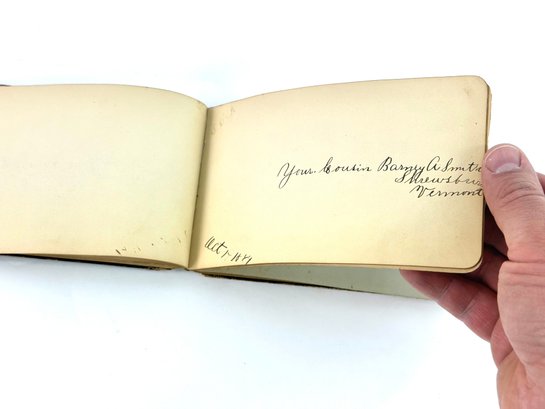 Your Cousin Barney A Smith
Shrewsbury
Vermont
Oct 1-